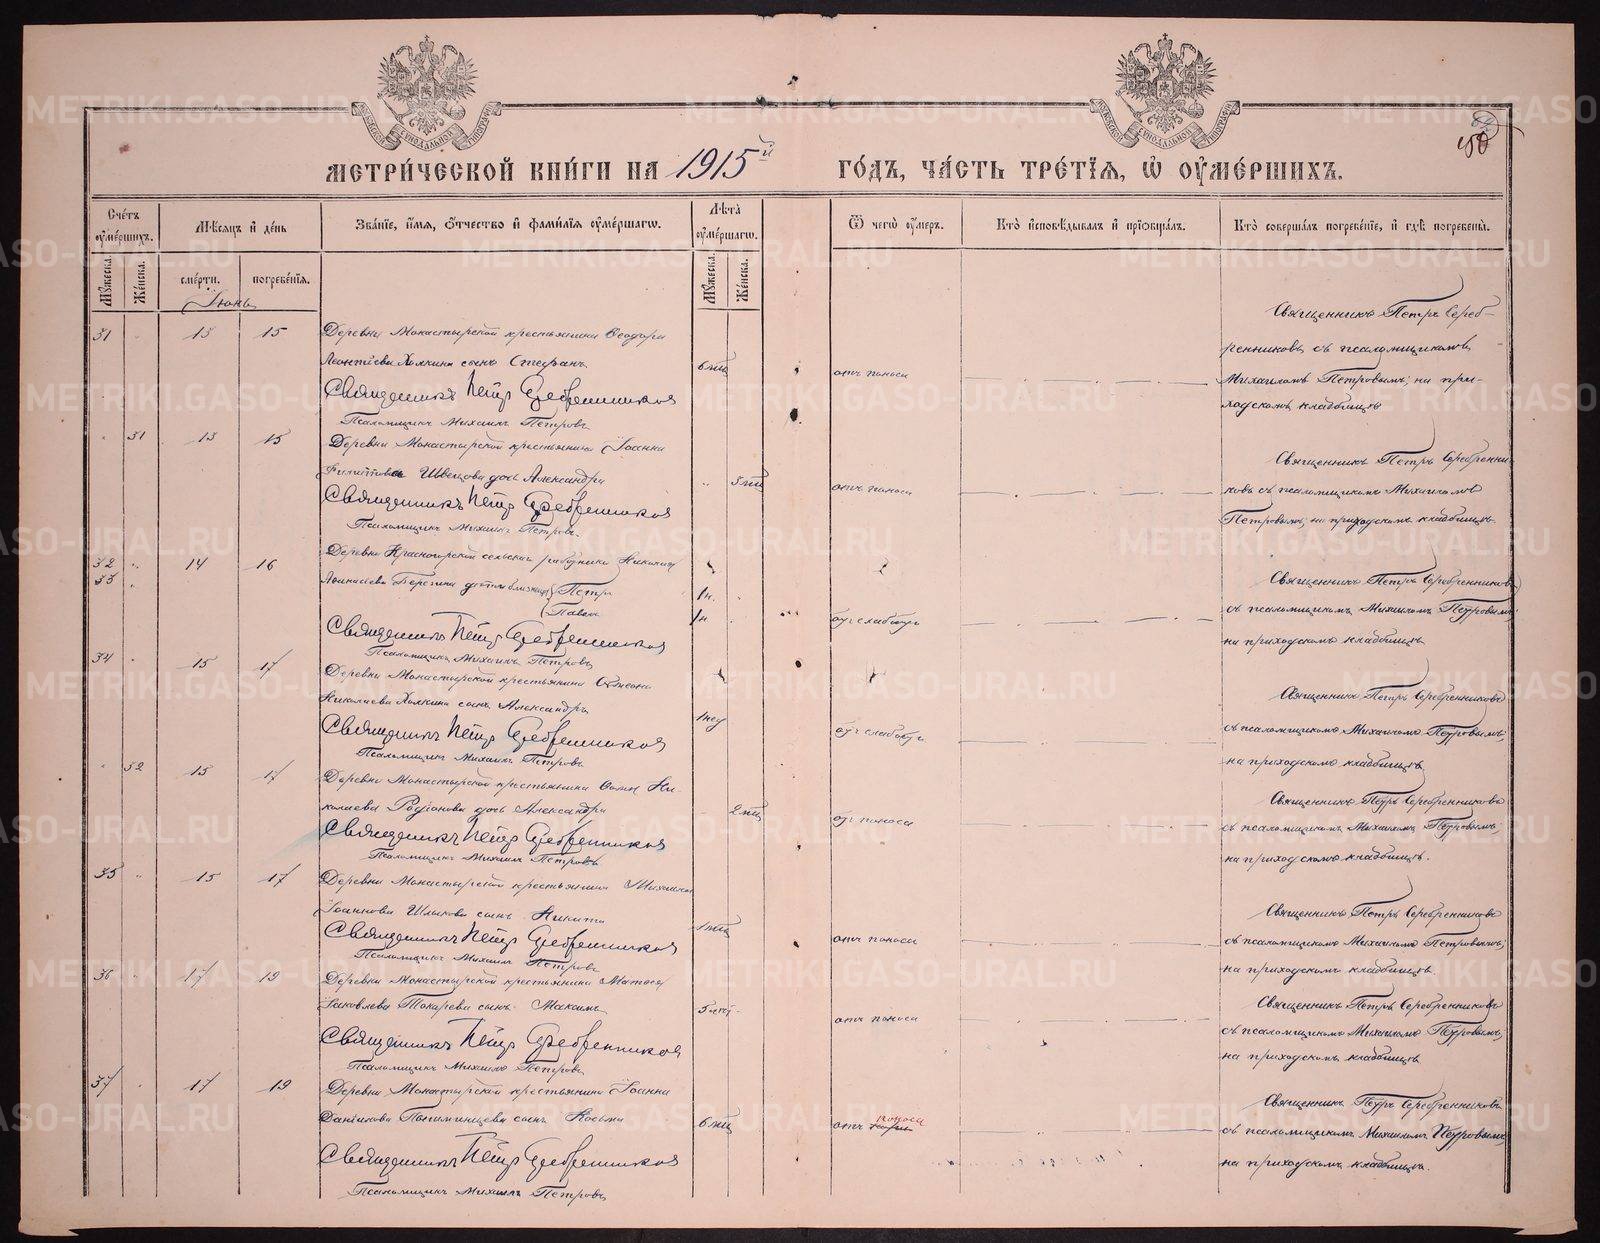 МЕТРИЧЕСКОЙ КНИГИ НА 1915й ГОДЪ, ЧАСТЬ ТРЕТІЯ, Ѡ ОУМЕРШИХЪ.
Счетъ оумершихъ.
Мѣсяцъ и день
Званіе, имя, отчество и фамилія оумершагѡ.
Лѣта оумершагѡ.
Ѿ чегѡ оумеръ.
Кто исповѣдывалъ и пріобщалъ.
Кто совершалъ погребеніе, и гдѣ погребены.
Мужеска.
Женска.
смерти.
погребенія.
Мужеска.
Женска.
Іюнь
31 13 15 Деревни Монастырской крестьянина Ѳеодора
Леонтіева Холкина сынъ Стефанъ 6 мѣс отъ поноса
Священникъ Петръ Серебренниковъ
Псаломщикъ Михаилъ Петровъ
Священникъ Петръ Сереб-
ренниковъ съ псаломщикомъ
Михаиломъ Петровымъ; на при-
ходскомъ кладбищѣ
31 13 15 Деревни Монастырской крестьянина Іоанна
Филиппова Швецова дочь Александра 5 мѣс отъ поноса
Священникъ Петръ Серебренниковъ
Псаломщикъ Михаилъ Петровъ
Священникъ Петръ Серебренни-
ковъ съ псаломщикомъ Михаиломъ
Петровымъ; на приходскомъ кладбищѣ
32 14 16 Деревни Красногорской сельскаго работника Николая
33 Березина дѣти близнецы Петръ 1 н.
Павелъ 1 н отъ слабости
Священникъ Петръ Серебренниковъ
Псаломщикъ Михаилъ Петровъ
Священникъ Петръ Серебренниковъ
съ псаломщикомъ Михаиломъ Петровымъ;
на приходскомъ кладбищѣ
34 15 17 Деревни Монастырской крестьянина Симеона
Николаева Холкина сынъ Александръ 1 нед отъ слабости
Священникъ Петръ Серебренниковъ
Псаломщикъ Михаилъ Петровъ
Священникъ Петръ Серебренниковъ
съ псаломщикомъ Михаиломъ Петровымъ;
на приходскомъ кладбищѣ
32 15 17 Деревни Монастырской крестьянина Ни-
колаева Родіонова дочь Александра 2 мѣс отъ поноса
Священникъ Петръ Серебренниковъ
Псаломщикъ Михаилъ Петровъ
Священникъ Петръ Серебренниковъ
съ псаломщикомъ Михаиломъ Петровымъ;
на приходскомъ кладбищѣ.
35 15 17 Деревни Монастырской крестьянина Михаила
Іоаннова Шлыкова сынъ Никита 1 мѣс отъ поноса
Священникъ Петръ Серебренниковъ
Псаломщикъ Михаилъ Петровъ
Священникъ Петръ Серебренниковъ
съ псаломщикомъ Михаиломъ Петровымъ;
на приходскомъ кладбищѣ.
36 17 19 Деревни Монастырской крестьянина Матѳея
Іаковлева Токарева сынъ Максимъ 5 лѣт. отъ поноса
Священникъ Петръ Серебренниковъ
Псаломщикъ Михаилъ Петровъ
Священникъ Петръ Серебренниковъ
съ псаломщикомъ Михаиломъ Петровымъ;
на приходскомъ кладбищѣ
37 17 19 Деревни Монастырской крестьянина Іоанна
сынъ Косьма 6 мѣс отъ поноса
Священникъ Петръ Серебренниковъ
Псаломщикъ Михаилъ Петровъ
Священникъ Петръ Серебренниковъ
съ псаломщикомъ Михаиломъ Петровымъ;
на приходскомъ кладбищѣ.
METRIKI.GASO-URAL.RU